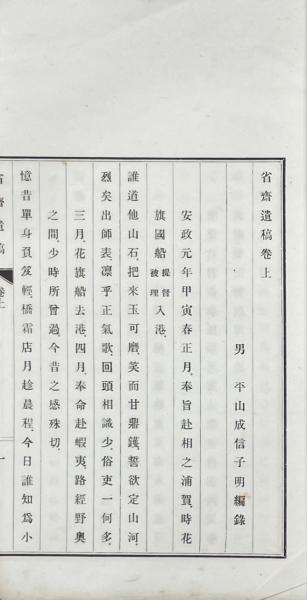 省齋遺稿卷上
男　平山成信子明編錄
安政元年甲寅春正月、奉旨赴相之浦賀、時花
旗國船提督彼理入港、
誰道他山石、把來玉可磨、笑而甘鼎鑊、誓欲定山河、
烈矣出師表、凜乎正氣歌、回頭相識少、俗吏一何多、
三月、花旗船去港、四月、奉命赴蝦夷、路經野奧
之間、少時所曾過、今昔之感殊切、
憶昔單身負笈輕、橋霜店月趁晨程、今日誰知爲小
省齋遺稿
卷上
一